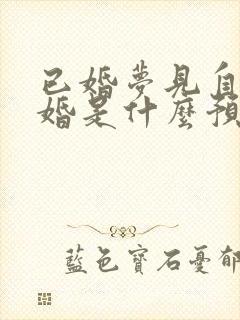 已婚夢見自
婚是什麼預
藍色寶石憂郁